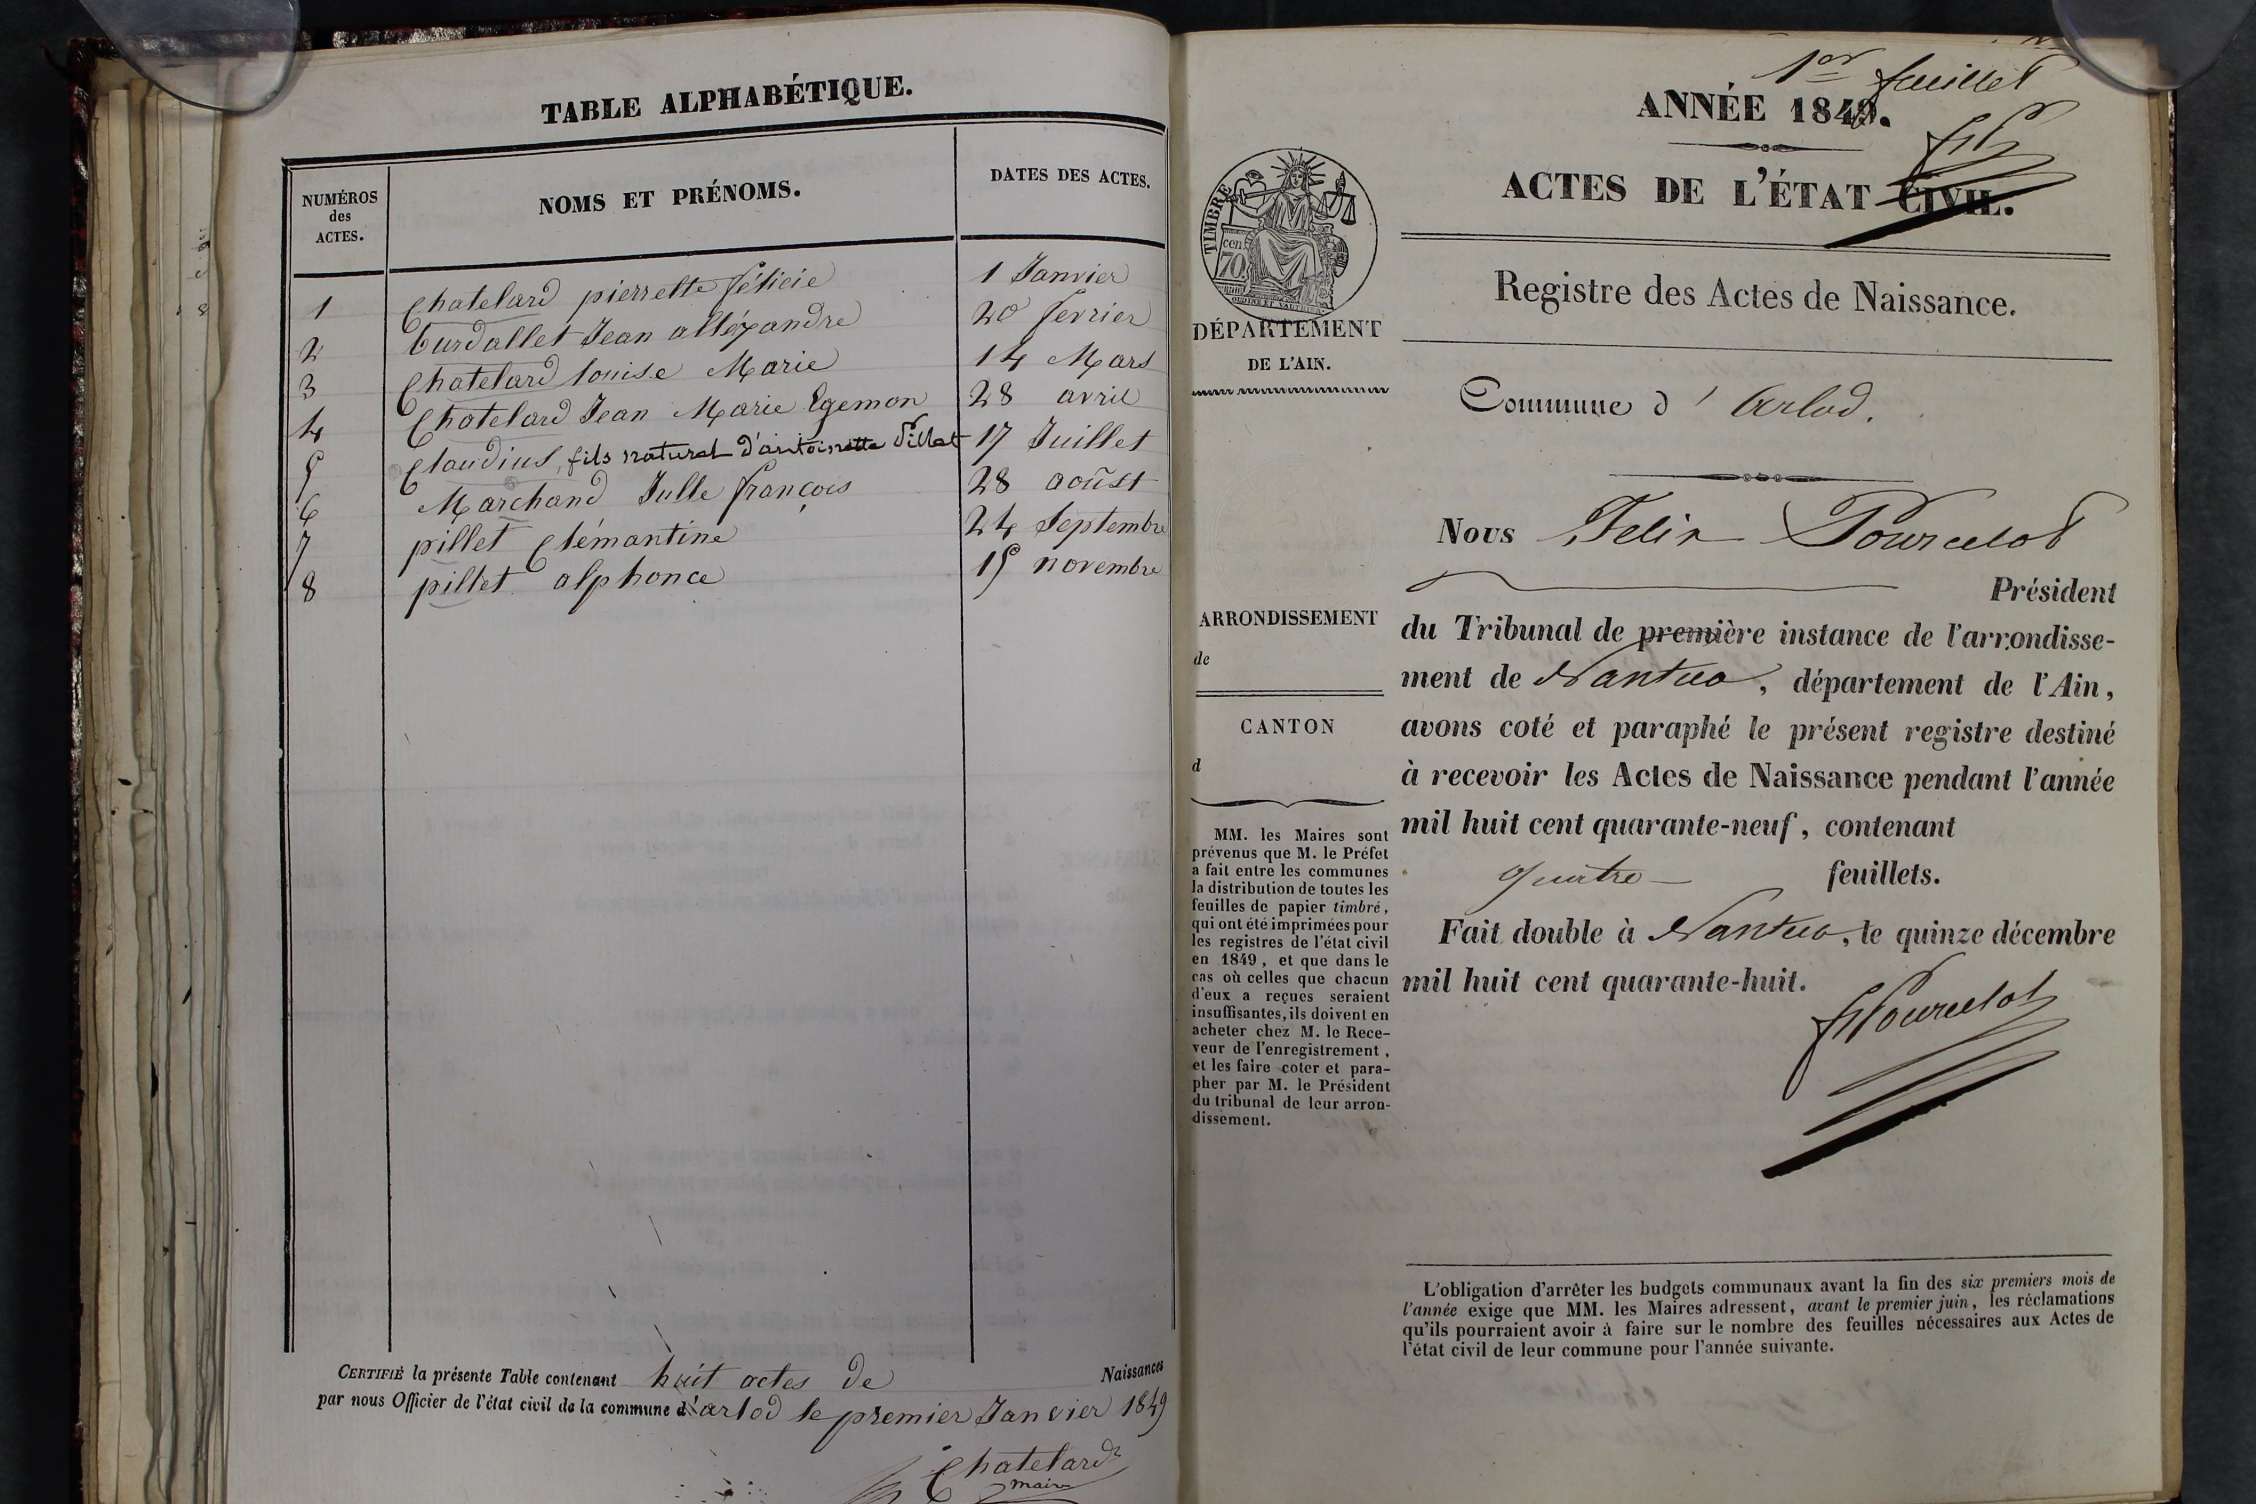 TABLE ALPHABÉTIQUE.
NUMÉROS
des
ACTES.
NOMS ET PRÉNOMS.
DATES DES ACTES.
1 Chatelard pierrette félicie 1 Janvier
2 Burdallet Jean alléxandre 20 fevrier
3 Chatelard louise Marie 14 Mars
4 Chatelard Jean Marie Egemon 28 avril
5 Claudius, fils naturel d'antoinette Pillet 17 Juillet
6 Marchand Julle françois 28 août
7 pillet Clémantine 24 Septembre
8 pillet alphonce 15 novembre
CERTIFIÉ la présente Table contenant huit actes de Naissances
par nous Officier de l'état civil de la commune d'arlod le premier Janvier 1849
Chatelard
maire
1er feuillet
ANNÉE 1849.
ACTES DE L'ÉTAT CIVIL.
Registre des Actes de Naissance.
TIMBRE
70 cen.
DÉPARTEMENT
DE L'AIN.
Commune d'Arlod.
Nous Felix Pourcelot
Président
du Tribunal de première instance de l'arrondisse-
ment de Nantua, département de l'Ain,
avons coté et paraphé le présent registre destiné
à recevoir les Actes de Naissance pendant l'année
mil huit cent quarante-neuf, contenant
quatre feuillets.
Fait double à Nantua, le quinze décembre
mil huit cent quarante-huit.
FPourcelot
ARRONDISSEMENT
de
CANTON
d
MM. les Maires sont
prévenus que M. le Préfet
a fait entre les communes
la distribution de toutes les
feuilles de papier timbré,
qui ont été imprimées pour
les registres de l'état civil
en 1849, et que dans le
cas où celles que chacun
d'eux a reçues seraient
insuffisantes, ils doivent en
acheter chez M. le Rece-
veur de l'enregistrement,
et les faire coter et para-
pher par M. le Président
du tribunal de leur arron-
dissement.
L'obligation d'arrêter les budgets communaux avant la fin des six premiers mois de
l'année exige que MM. les Maires adressent, avant le premier juin, les réclamations
qu'ils pourraient avoir à faire sur le nombre des feuilles nécessaires aux Actes de
l'état civil de leur commune pour l'année suivante.